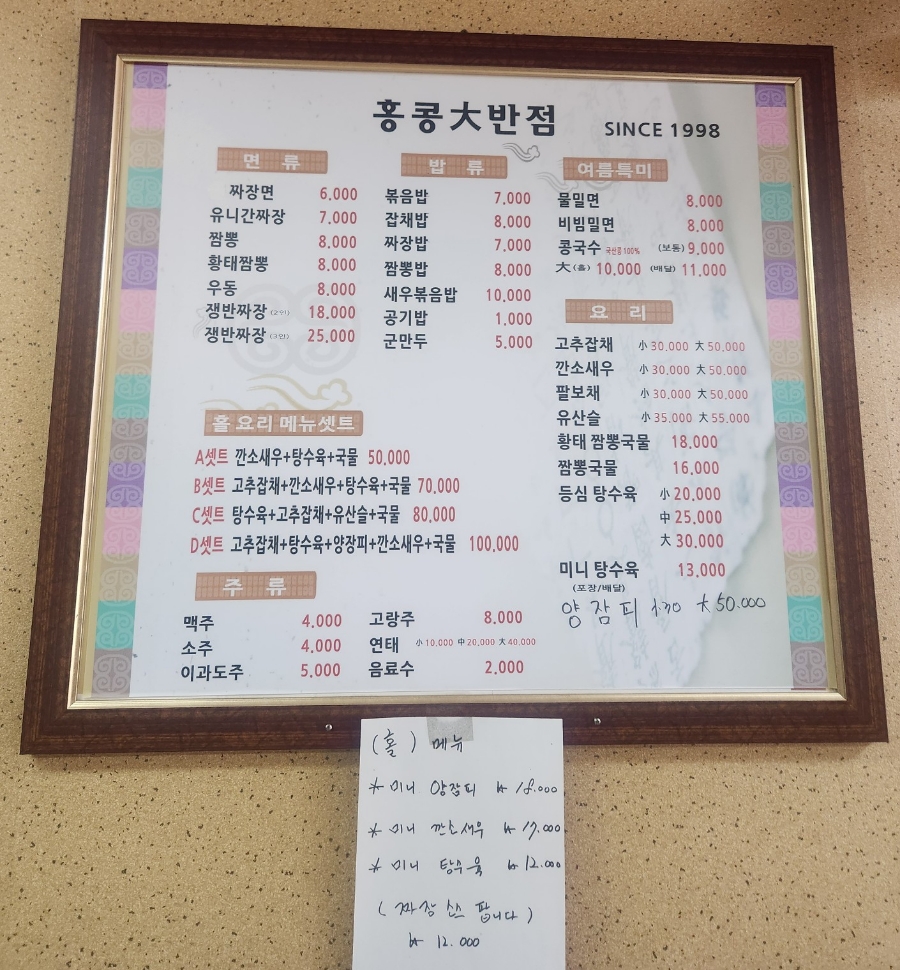 홍콩大반점 SINCE 1998
면 류
짜장면 6,000
유니간짜장 7,000
짬뽕 8,000
황태짬뽕 8,000
우동 8,000
쟁반짜장 (2인) 18,000
쟁반짜장 (3인) 25,000
밥 류
볶음밥 7,000
잡채밥 8,000
짜장밥 7,000
짬뽕밥 8,000
새우볶음밥 10,000
공기밥 1,000
군만두 5,000
여름특미
물밀면 8,000
비빔밀면 8,000
콩국수 국산콩100% (보통) 9,000
大(홀) 10,000 (배달) 11,000
요 리
고추잡채 小 30,000 大 50,000
깐소새우 小 30,000 大 50,000
팔보채 小 30,000 大 50,000
유산슬 小 35,000 大 55,000
황태 짬뽕국물 18,000
짬뽕국물 16,000
등심 탕수육 小 20,000
中 25,000
大 30,000
미니 탕수육 13,000
(포장/배달)
양장피 大 50.000
홀 요리 메뉴셋트
A셋트 깐소새우+탕수육+국물 50,000
B셋트 고추잡채+깐소새우+탕수육+국물 70,000
C셋트 탕수육+고추잡채+유산슬+국물 80,000
D셋트 고추잡채+탕수육+양장피+깐소새우+국물 100,000
주 류
맥주 4,000
소주 4,000
이과도주 5,000
고량주 8,000
연태 小 10,000 中 20,000 大 40,000
음료수 2,000
(홀) 메뉴
* 미니 양장피 ₩ 18.000
* 미니 깐소새우 ₩ 17.000
* 미니 탕수육 ₩ 12.000
(짜장 소스 팝니다)
₩ 12.000